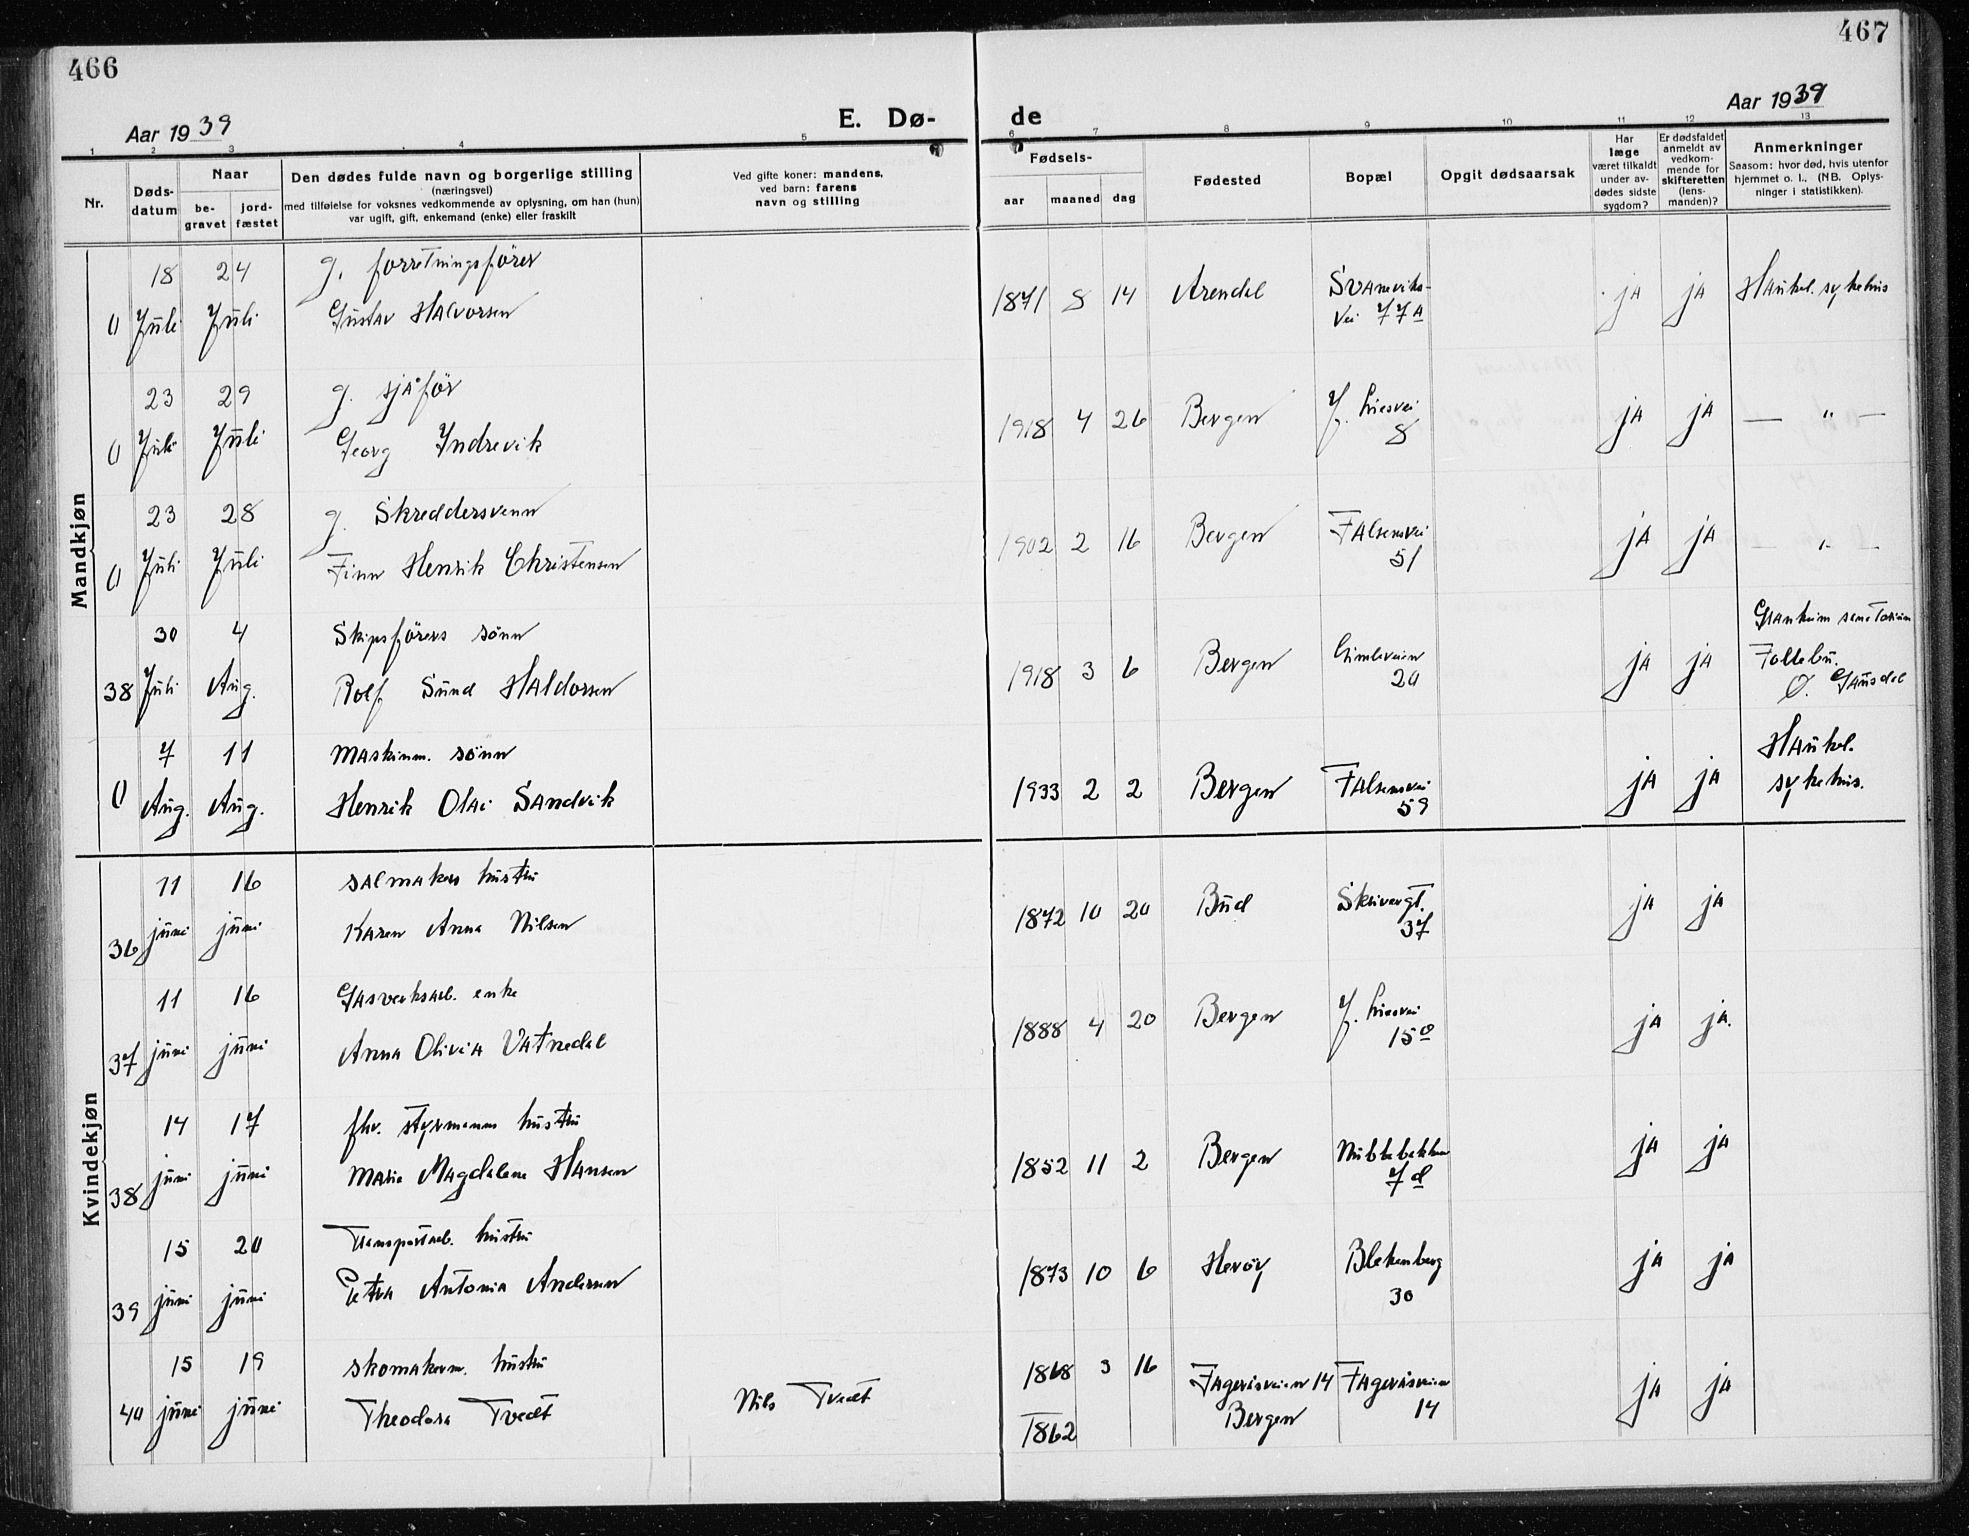 466
467
Aar 1939
E. Dø-
de
Aar 1939
1 2 3 4 5 6 7 8 9 10 11 12 13
Nr.
Døds-
datum
Naar
be-
gravet
jord-
fæstet
Den dødes fulde navn og borgerlige stilling
(næringsvei)
med tilføielse for voksnes vedkommende av oplysning, om han (hun)
var ugift, gift, enkemand (enke) eller fraskilt
Ved gifte koner: mandens,
ved barn: farens
navn og stilling
Fødsels-
aar maaned dag
Fødested
Bopæl
Opgit dødsaarsak
Har
læge
været tilkaldt
under av-
dødes sidste
sygdom?
Er dødsfaldet
anmeldt av
vedkom-
mende for
skifteretten
(lens-
manden)?
Anmerkninger
Saasom: hvor død, hvis utenfor
hjemmet o. l., (NB. Oplys-
ninger i statistikken).
Mandkjøn
18 24 g. forretningsfører
0 Juli Juli Gustav Halvorsen 1871 8 14 Arendal Svaneviks-
vei 77A ja ja Haukel. sykehus
23 29 g. sjåfør
0 Juli Juli Georg Indrevik 1918 4 26 Bergen J. Liesvei
8 ja ja — " —
23 28 g. Skreddersvenn
0 Juli Juli Finn Henrik Christensen 1902 2 16 Bergen Falsensvei
51 ja ja — " —
30 4 Skipsførers sønn
38 Juli Aug. Rolf Sund Haldorsen 1918 3 6 Bergen Gimleveien
20 ja ja Granheim sanatorium
Follebu.
Ø. Gausdal
7 11 Maskinm. sønn
0 Aug. Aug. Henrik Olai Sandvik 1933 2 2 Bergen Falsensvei
59 ja ja Haukel.
sykehus.
Kvindekjøn
11 16 salmakers hustru
36 juni juni Karen Anna Nilsen 1872 10 20 Bud Skivergt.
37 ja ja
11 16 Gasverksarb. enke
37 juni juni Anna Olivia Vatnedal 1888 4 20 Bergen J. Liesvei
15 ja ja.
14 17 fhv. styrmanns hustru
38 juni juni Marie Magdalene Hansen 1852 11 2 Bergen Nubbebakken
7 d ja ja
15 20 Transportarb. hustru
39 juni juni Petra Antonia Andersen 1873 10 6 Herøy Blekenberg
30 ja ja
15 19 skomakerm. hustru
40 juni juni Theodora Tvedt Nils Tvedt 1868 3 16 Fageråsveien 14 Fageråsveien
1862 Bergen 14 ja ja